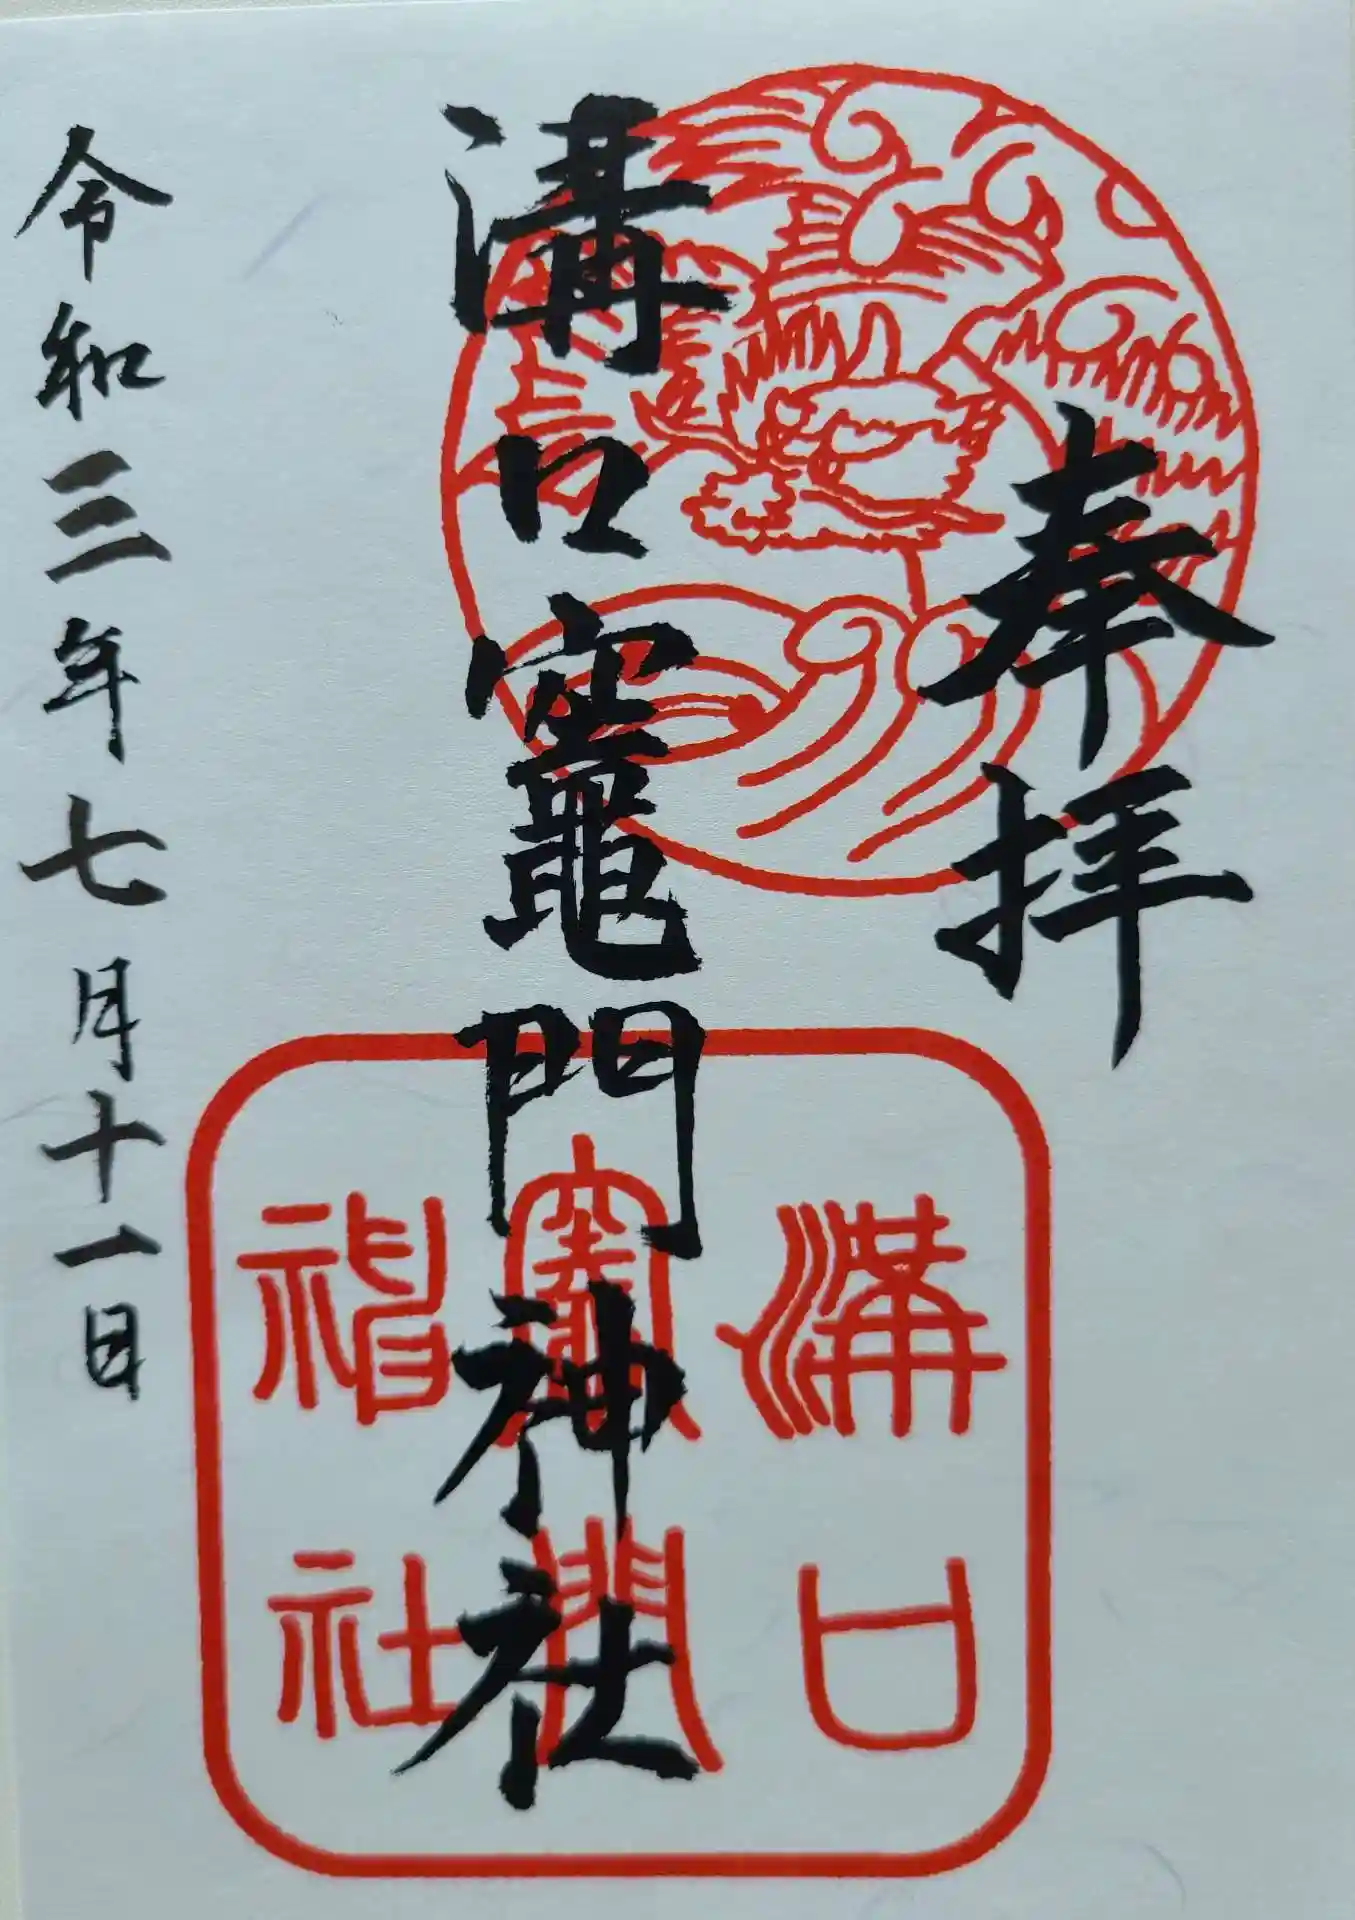 奉拝
溝口竈門神社
溝口
竈門
神社
令和三年七月十一日